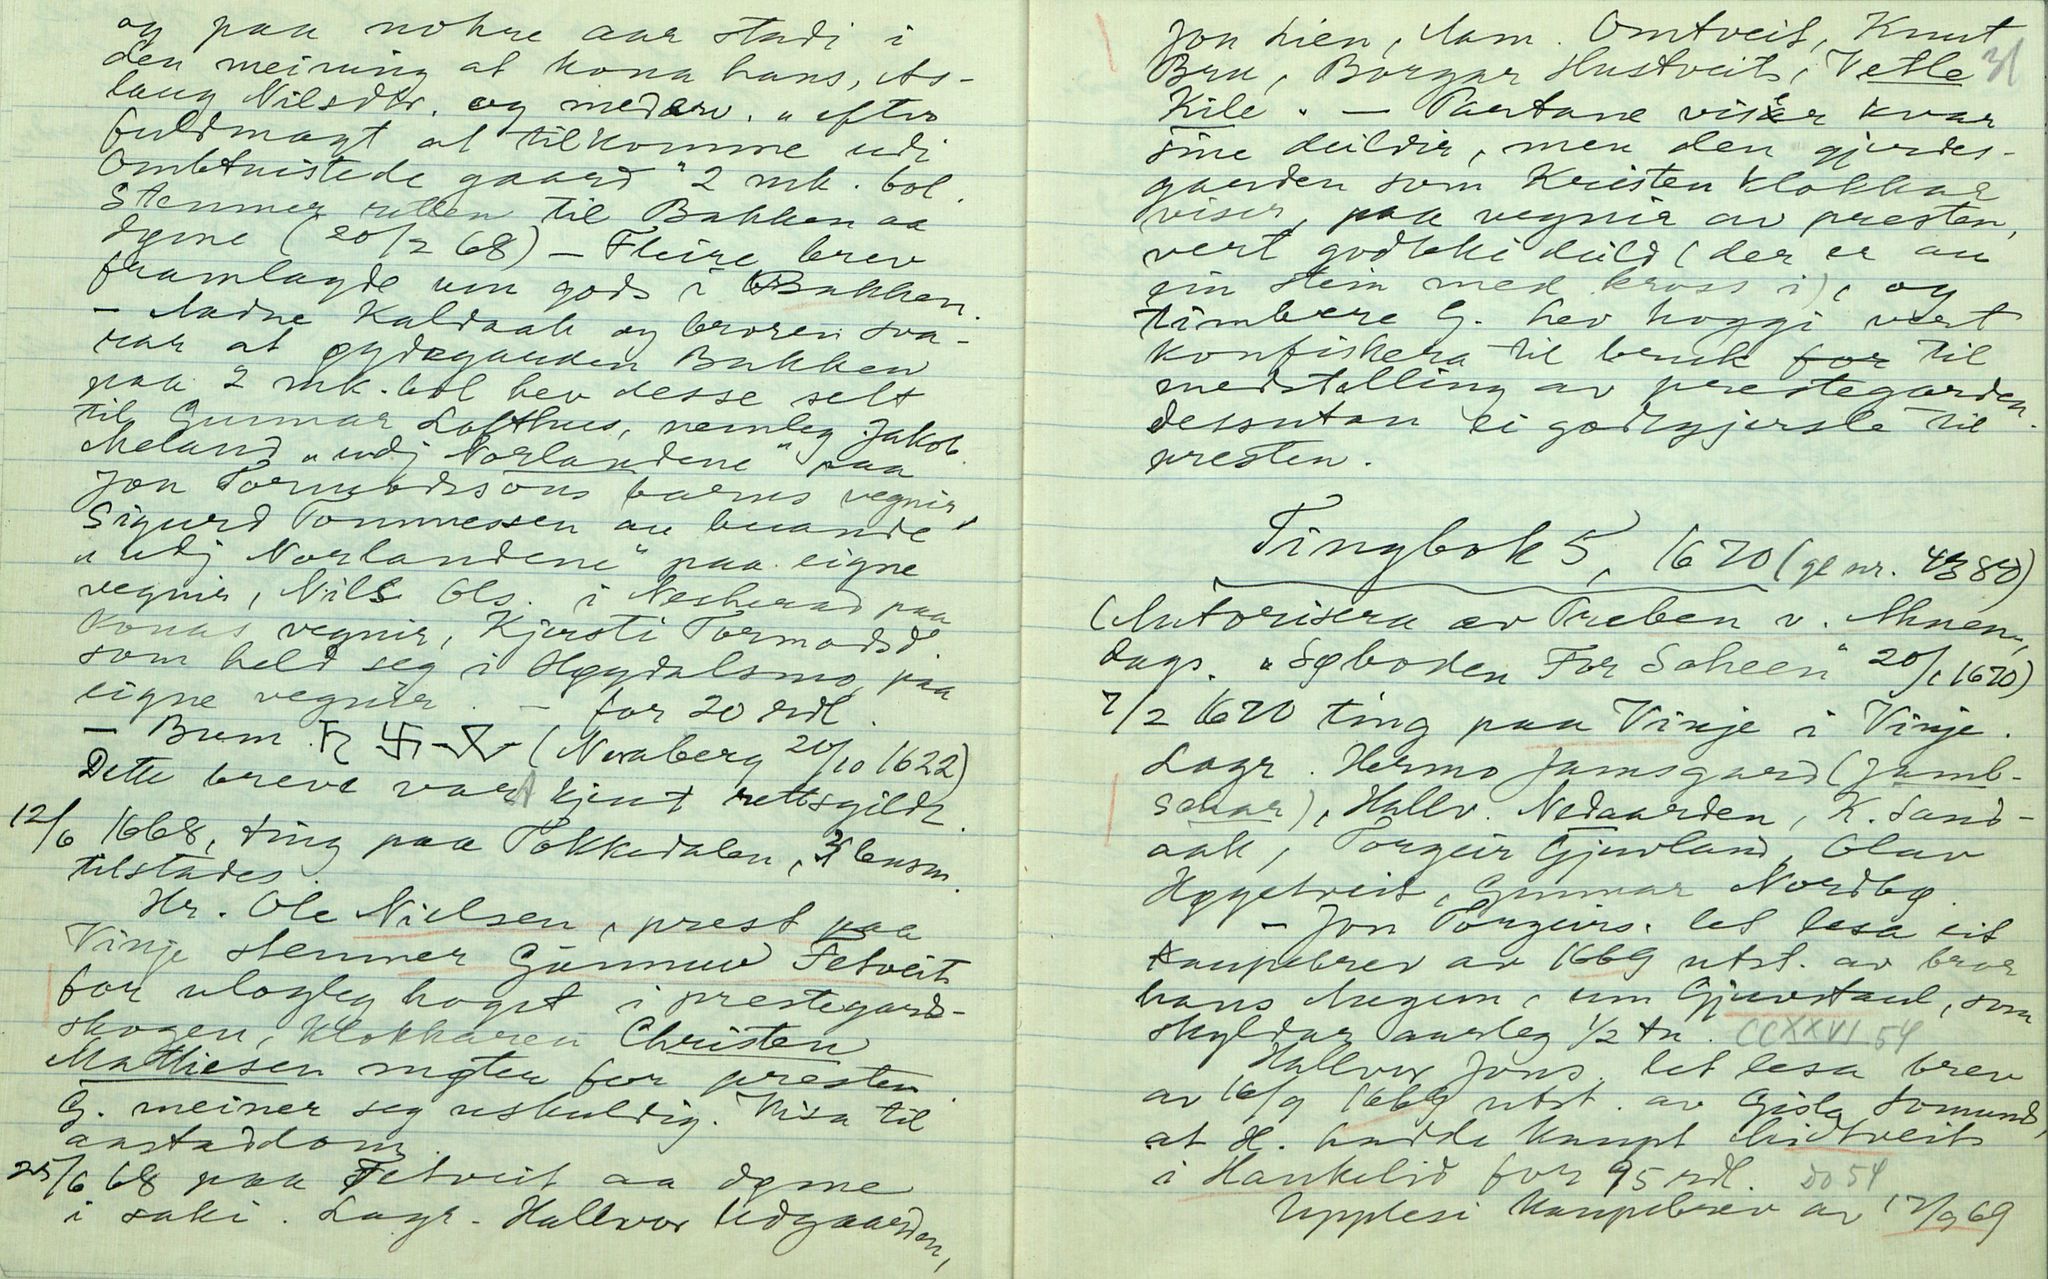 og paa nokre aar stadi i
den meining at kona hans, As-
laug Nilsdtr. og medarv. "efter
fuldmagt at tilkomme udi
Ombtuistede gaard" 2 mk. bol.
Stemner retten til Bakken aa
døme (20/2 68) – Fleire brev
framlagde um gods i Bakken.
– Aadne Kaldaak og broren sva-
rar at øydegarden Bakken
paa 2 mk. bol hev desse selt
til Gunnar Lofthus, nemleg Jakob
Meland "udj Norlandene" paa
Jon Tormodssons barns vegnir,
Sigurd Tommessen au buande
"udj Norlandene" paa eigne
vegnir, Nils Ols. i Nesherad paa
konas vegnir, Kjersti Tormodsd.
som held seg i Høydalsmo paa
eigne vegnir. – for 20 rdl.
– Bum. (Noraberg 20/10 1622)
Dette breve vart kjent rettsgildt.
12/6 1668, ting paa Tokkedalen, 31 lensm.
tilstades.
Hr. Ole Nielsen, prest paa
Vinje stemner Gunnuv Fetveit
for ulogleg hogst i prestegards-
skogen, Klokkaren Christen
Mathiesen møter for presten.
G. meiner seg uskuldig. Visa til
aastaddom.
25/6 68 paa Fetveit aa døme
i saki. Lagr. Hallvor Udgaarden,
Jon Lien, Aam. Omtveit, Knut
Bru, Borgar Hustveit, Vetle 31
Kile. – Partane viser kvar
sine deildir, men den gjerdes-
garden som Kristen klokkar
viser, paa vegnir av presten,
vert godteki deild (der er au
ein stein med kross i), og
timbere G. hev hoggi vert
konfiskera til bruk for til
medstelling av prestegarden.
dessutan ei godtgjersle til
presten.
Tingbok 5, 1670 (gl nr. 4380)
(Autorisera av Preben v. Ahnen,
dags. "Søboden For Scheen" 20/1 1670)
7/2 1670 ting paa Vinje i Vinje.
Lagr. Hermo Jamsgard (Jamb-
schar), Hallv. Nedaarden, K. Sand-
aak, Torgeir Gjuvland, Olav
Høgetveit, Gunnar Nordbø.
– Jon Torgeirs. let lesa eit
kaupebrev av 1669 utst. av bror
hans Augun, um Gjuvstaul, som
skyldar aarleg 1/2 tn. CCXXVI 54
Hallvor Jons. let lesa brev
av 16/9 1669 utst. av Gisle Somunds,
at H. hadde kaupt Midtveit
i Haukelid for 95 rdl. Do 54
Upplesi kaupebrev av 17/9 69